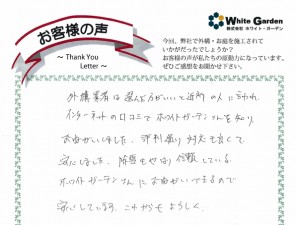 White Garden
株式会社 ホワイト・ガーデン
お客様の声
～ Thank You
Letter ～
今回、弊社で外構・お庭を施工されて
いかがだったでしょうか？
お客様の声が私たちの原動力になっています。
ぜひご感想をお聞かせ下さい。
外構業者は選んだ方がいいと近所の人に言われ
インターネットの口コミでホワイトガーデンさんを知り、
お願いしました。評判通り対応も良くて
安心しました。
信頼している
ホワイトガーデンさんにお願いできるので
安心しています。これからもよろしく。